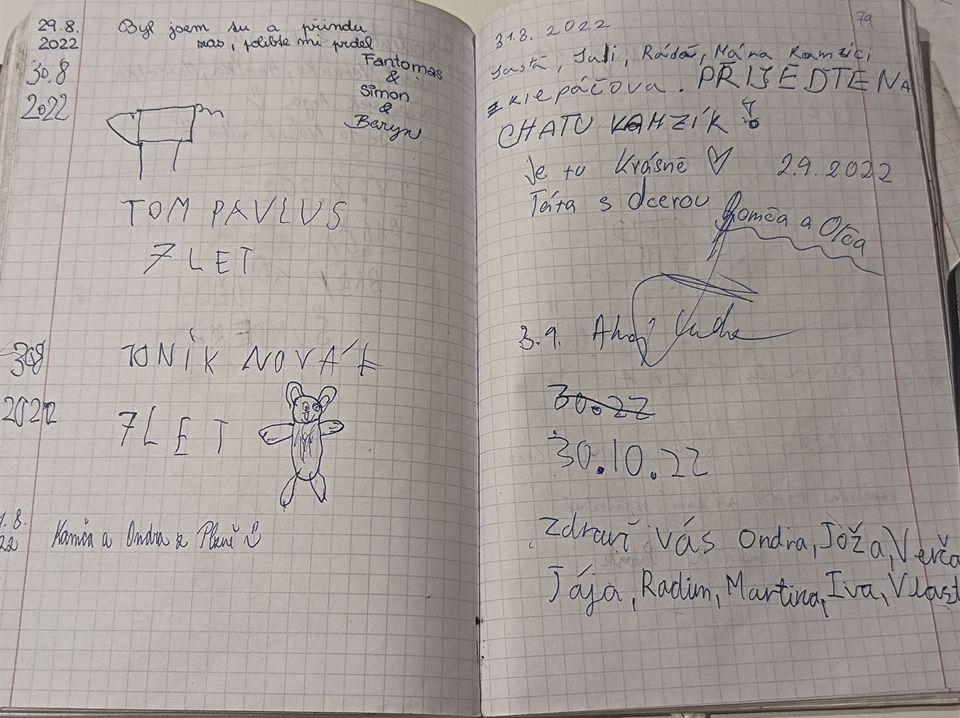 29.8.
2022
Byl jsem tu a přindu
zas, polibte mi prdel
Fantomas
&
Simon
&
Beryn
30.8
2022
TOM PAVLUS
7 LET
308
2022
TONÍK NOVÁK
7 LET
1.8.
22
Kamča a Ondra z Plzně
79
31.8.2022
Justa, Juli, Ráďa, Mána Kamzíci,
z kiepáčova. PŘIJEĎTE NA
CHATU KAMZÍK!
Je tu krásně ♡ 2.9.2022
Táta s dcerou
Romča a Olča
3.9. Ahoj
30.22
30.10.22
Zdraví vás Ondra, Jóža, Verča
Jája, Radim, Martina, Iva, Vlast